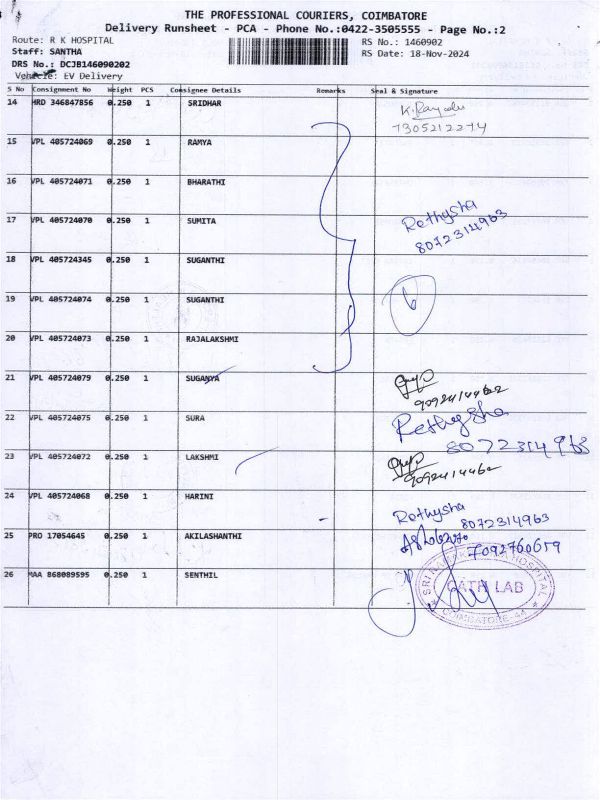 THE PROFESSIONAL COURIERS, COIMBATORE
Delivery Runsheet - PCA - Phone No.:0422-3505555 - Page No.:2
Route: R K HOSPITAL
Staff: SANTHA
DRS No.: DCJB146090202
Vehicle: EV Delivery
RS No.: 1460902
RS Date: 18-Nov-2024
S No Consignment No Weight PCS Consignee Details Remarks Seal & Signature
14 HRD 346847856 0.250 1 SRIDHAR
7305212274
15 VPL 405724069 0.250 1 RAMYA
16 VPL 405724071 0.250 1 BHARATHI
17 VPL 405724070 0.250 1 SUMITA Rethysha
8072314963
18 VPL 405724345 0.250 1 SUGANTHI
19 VPL 405724074 0.250 1 SUGANTHI
20 VPL 405724073 0.250 1 RAJALAKSHMI
21 VPL 405724079 0.250 1 SUGANYA
9092414462
22 VPL 405724075 0.250 1 SURA Rethysha
8072314963
23 VPL 405724072 0.250 1 LAKSHMI
9092414462
24 VPL 405724068 0.250 1 HARINI Rethysha
8072314963
25 PRO 17054645 0.250 1 AKILASHANTHI
7092760659
26 MAA 868089595 0.250 1 SENTHIL
CATH LAB
COIMBATORE-44